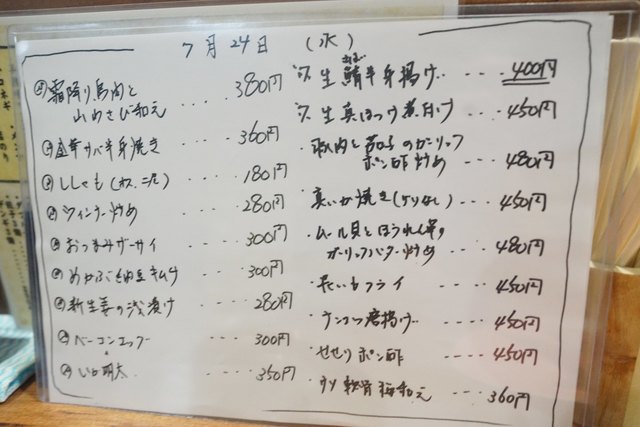 7月24日 (水)
霜降り馬肉と
山わさび和え ... 380円
塩サバ半身焼き ... 360円
ししゃも ... 180円
ウィンナー炒め ... 280円
おつまみザーサイ ... 300円
めかぶ納豆キムチ ... 300円
新生姜の浅漬け ... 280円
ベーコンエッグ ... 300円
いか明太 ... 350円
生鯖半身揚げ .... 400円
生真ほっけ煮付け ... 450円
豚肉と のガーリック
ポン酢炒め ... 480円
真いか焼き ... 450円
ムール貝とほうれん草
ガーリックバター炒め ... 480円
長いもフライ .... 450円
ナンコツ唐揚げ .... 450円
せせりポン酢 .... 450円
軟骨梅和え .... 360円